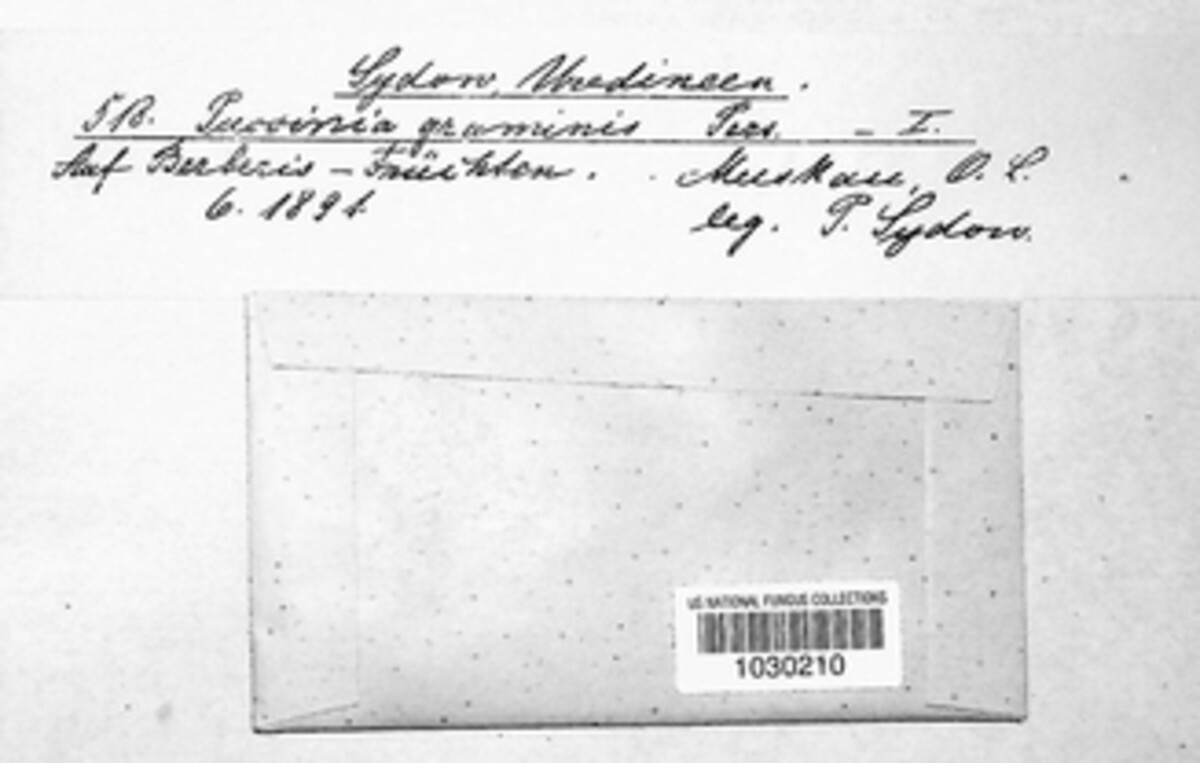 Sydow, Uredineen.
5B. Puccinia graminis Pers. - I.
Auf Berberis - Früchten. Muskau, O. L.
6. 1891. leg. P. Sydow.
US NATIONAL FUNGUS COLLECTIONS
1030210